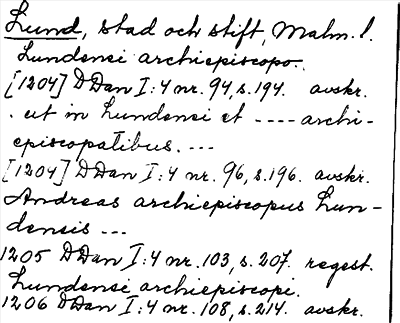 Lund, stad och stift, Malm. l.
Lundensi archiepiscopo.
[1204] DDan I:4 nr. 94, s. 194. avskr.
. ut in Lundensi et ---- archi-
episcopatibus. ---
[1204] DDan I:4 nr. 96, s. 196. avskr.
Andreas archiepiscopus Lun-
densis ---
1205 DDan I:4 nr. 103, s. 207. regest.
Lundensi archiepiscopi.
1206 DDan I:4 nr. 108, s. 214. avskr.